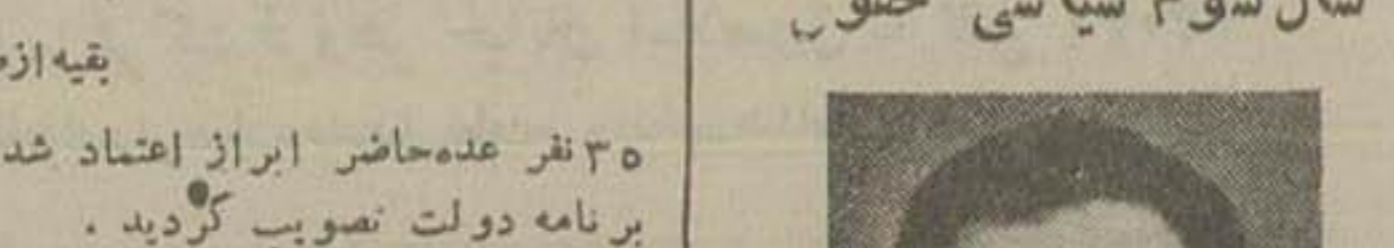 سال سوم سیاسی حقوق
بقیه از
۳۵ نفر عده‌حاضر ابراز اعتماد شد
برنامه دولت تصویب گردید .